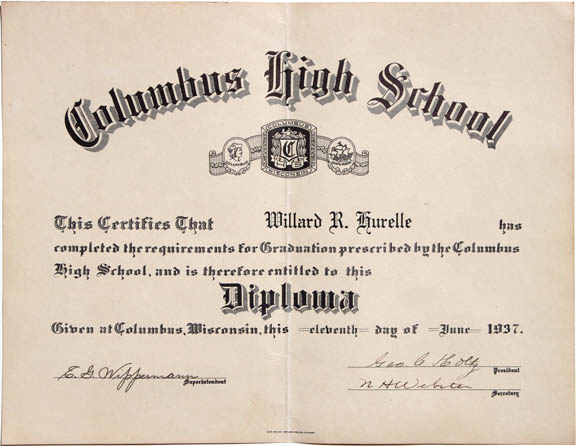 Columbus High School
COLUMBUS
C
WISCONSIN
This Certifies That Willard R. Hurelle has
completed the requirements for Graduation prescribed by the Columbus
High School, and is therefore entitled to this
Diploma
Given at Columbus, Wisconsin, this eleventh day of June 1937.
E. G. Wippermann
Superintendent
Geo. C. Holtz
President
N H Webster
Secretary